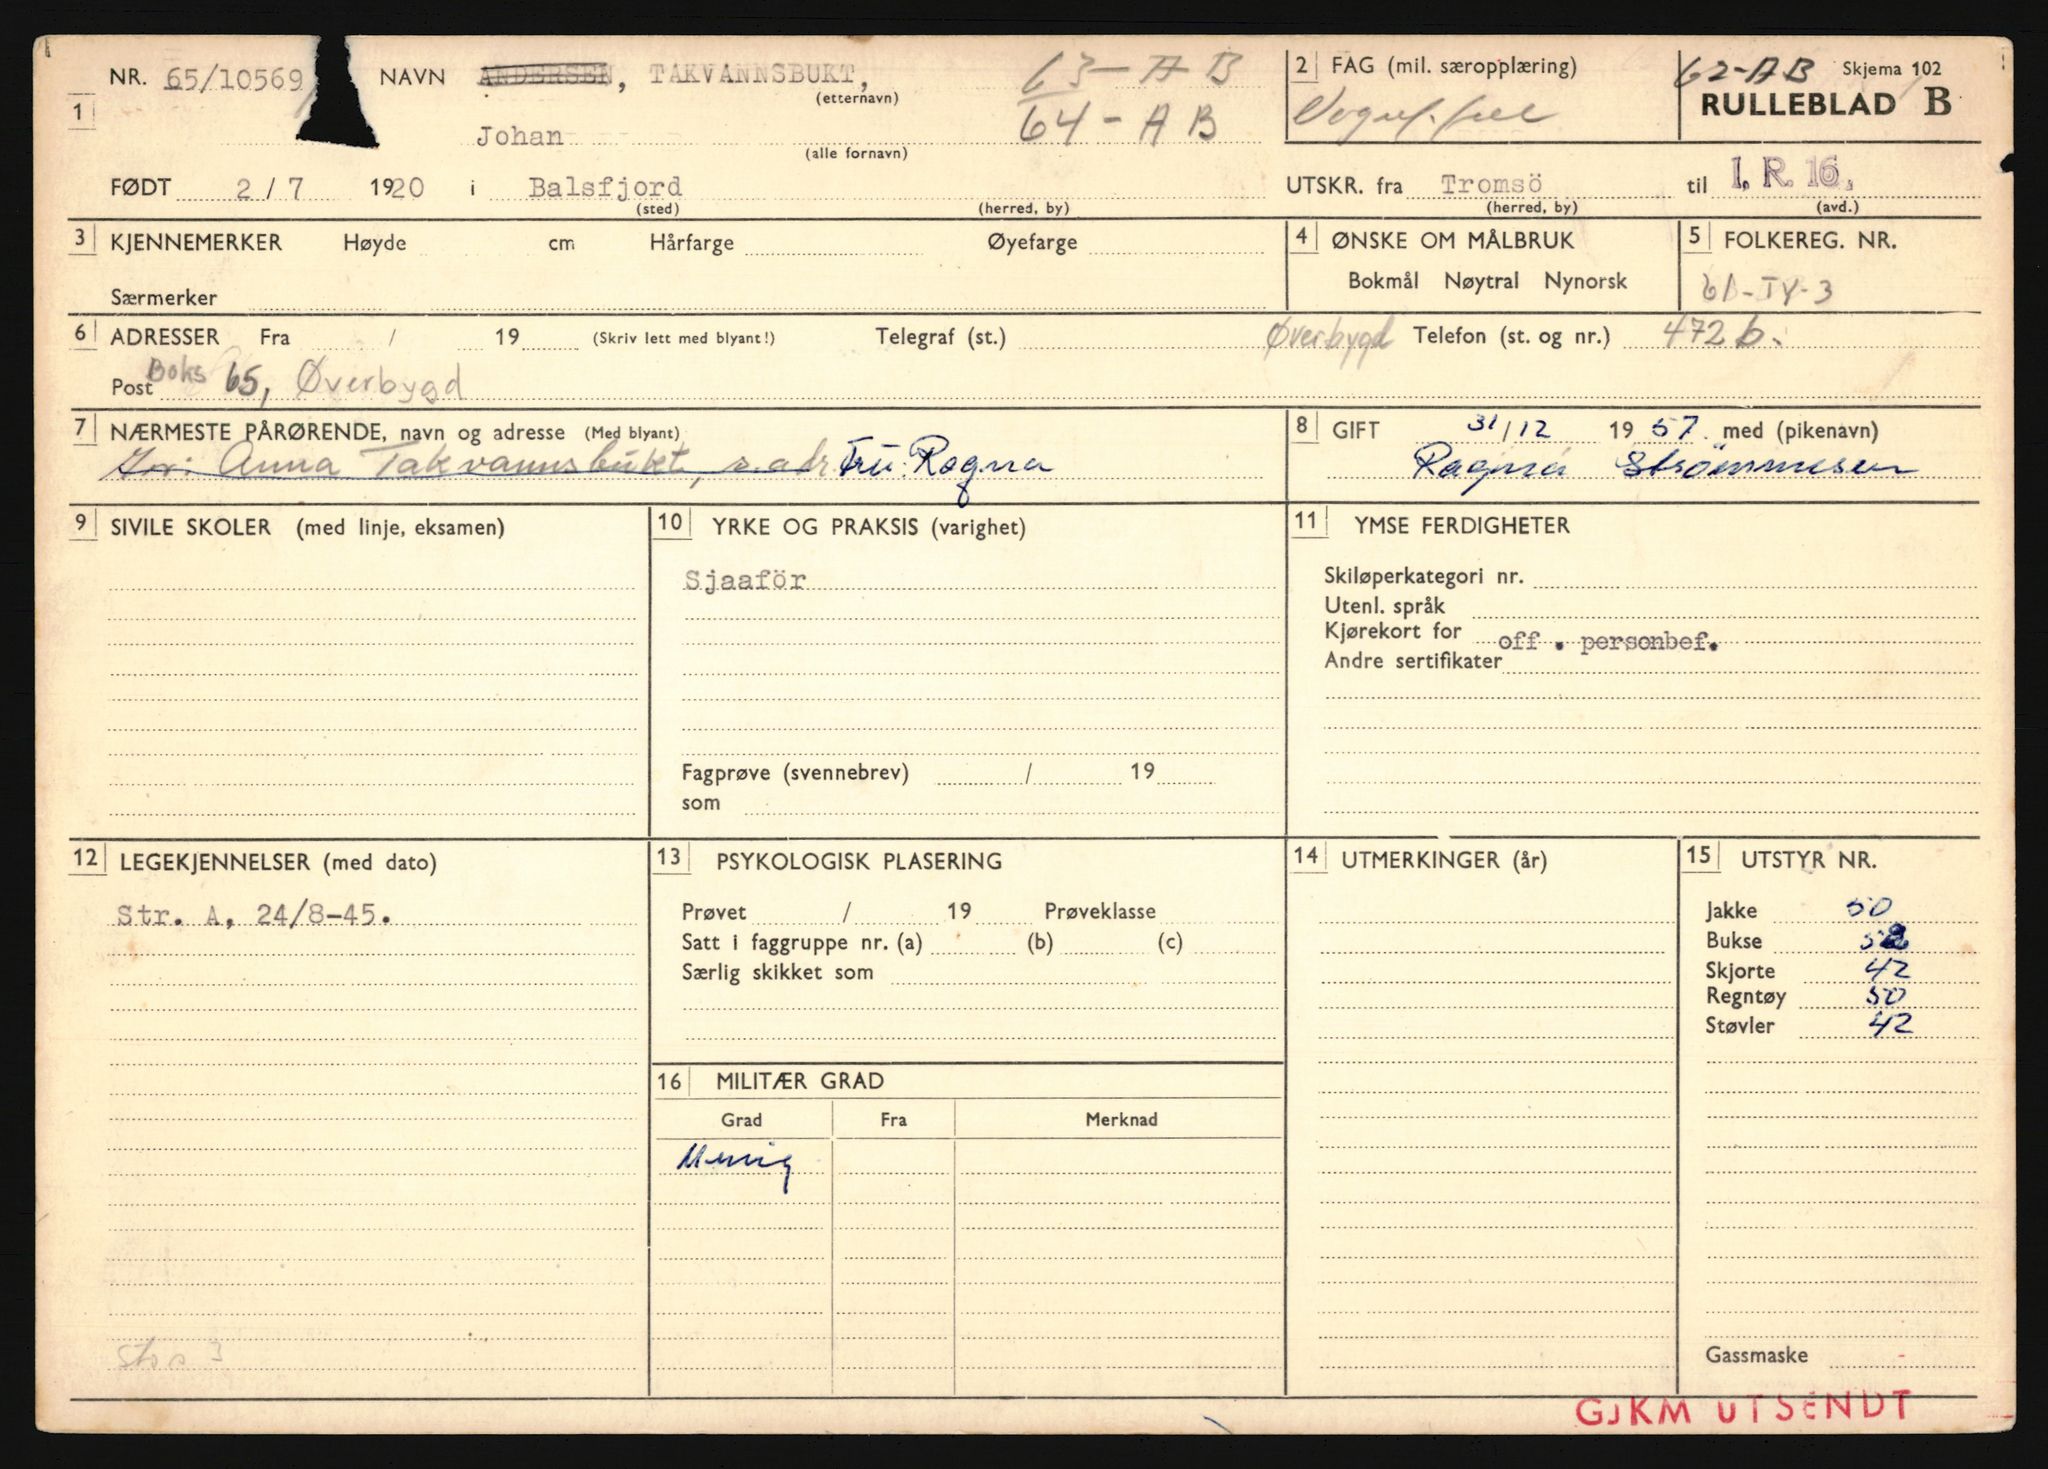 NR. 65/10569 NAVN ANDERSEN, TAKVANNSBUKT, 63-AB
(etternavn)
1 Johan 64-AB
(alle fornavn)
FØDT 2/7 1920 i Balsfjord
(sted) (herred, by)
2 FAG (mil. særopplæring)
62-AB Skjema 102
RULLEBLAD B
UTSKR. fra Tromsö til I.R.16.
(herred, by) (avd.)
3 KJENNEMERKER Høyde cm Hårfarge Øyefarge
Særmerker
4 ØNSKE OM MÅLBRUK
Bokmål Nøytral Nynorsk
5 FOLKEREG. NR.
6 ADRESSER Fra / 19 (Skriv lett med blyant!) Telegraf (st.) Øverbygd Telefon (st. og nr.) 472 b.
Post Boks 65, Øverbygd
7 NÆRMESTE PÅRØRENDE, navn og adresse (Med blyant)
Anna Takvannsbukt, s. adr. Fru: Ragna
8 GIFT 31/12 1957 med (pikenavn)
Ragna Strømmesen
9 SIVILE SKOLER (med linje, eksamen)
10 YRKE OG PRAKSIS (varighet)
Sjaaför
Fagprøve (svennebrev) / 19
som
11 YMSE FERDIGHETER
Skiløperkategori nr.
Utenl. språk
Kjørekort for off. personbef.
Andre sertifikater
12 LEGEKJENNELSER (med dato)
Str. A, 24/8-45.
13 PSYKOLOGISK PLASERING
Prøvet / 19 Prøveklasse
Satt i faggruppe nr. (a) (b) (c)
Særlig skikket som
14 UTMERKINGER (år)
15 UTSTYR NR.
Jakke 50
Bukse
Skjorte 42
Regntøy 50
Støvler 42
16 MILITÆR GRAD
Grad Fra Merknad
Menig
Gassmaske
GJKM UTSENDT